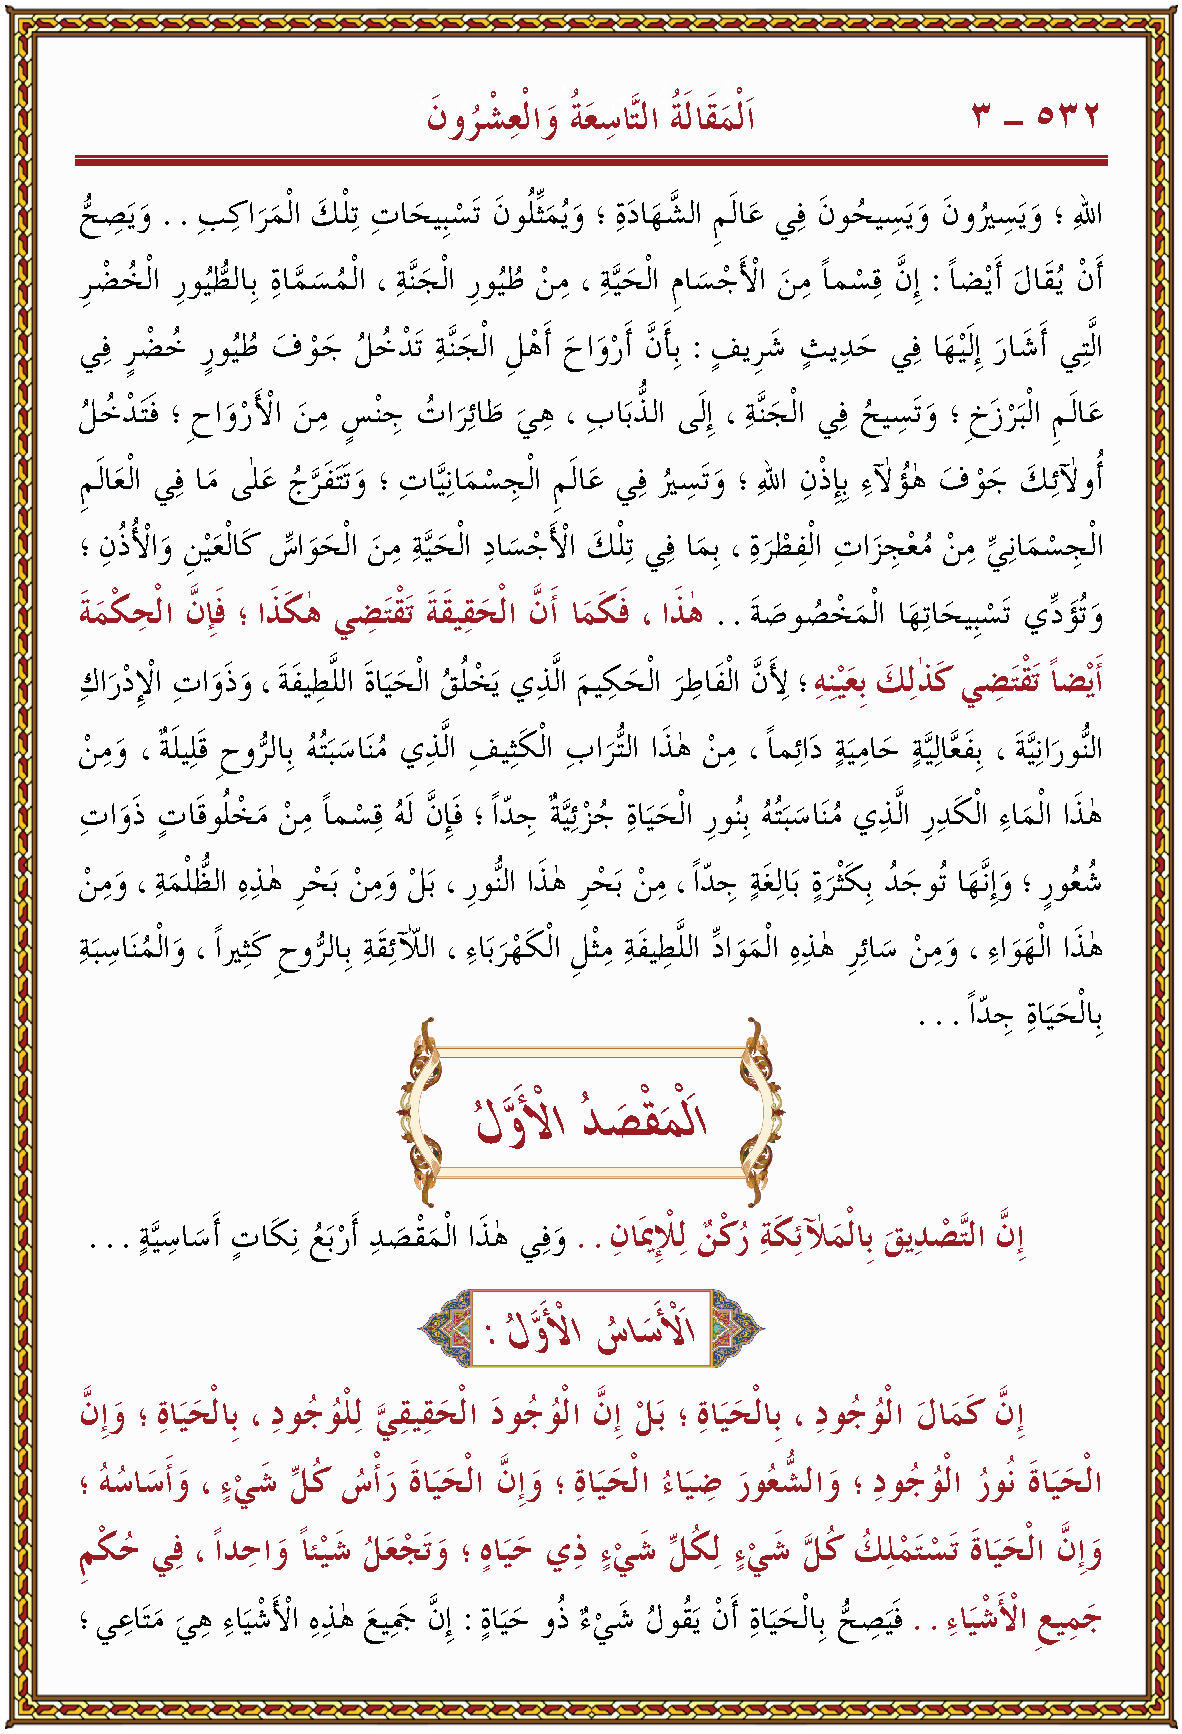 ٥٣٢ ـ ٣ اَلْمَقَالَةُ التَّاسِعَةُ وَالْعِشْرُونَ
اللهِ ؛ وَيَسِيرُونَ وَيَسِيحُونَ فِي عَالَمِ الشَّهَادَةِ ؛ وَيُمَثِّلُونَ تَسْبِيحَاتِ تِلْكَ الْمَرَاكِبِ . . وَيَصِحُّ
أَنْ يُقَالَ أَيْضاً : إِنَّ قِسْماً مِنَ الْأَجْسَامِ الْحَيَّةِ ، مِنْ طُيُورِ الْجَنَّةِ ، الْمُسَمَّاةِ بِالطُّيُورِ الْخُضْرِ
الَّتِي أَشَارَ إِلَيْهَا فِي حَدِيثٍ شَرِيفٍ : بِأَنَّ أَرْوَاحَ أَهْلِ الْجَنَّةِ تَدْخُلُ جَوْفَ طُيُورٍ خُضْرٍ فِي
عَالَمِ الْبَرْزَخِ ؛ وَتَسِيحُ فِي الْجَنَّةِ ، إِلَى الذُّبَابِ ، هِيَ طَائِرَاتُ جِنْسٍ مِنَ الْأَرْوَاحِ ؛ فَتَدْخُلُ
أُولَآئِكَ جَوْفَ هٰؤُلَآءِ بِإِذْنِ اللهِ ؛ وَتَسِيرُ فِي عَالَمِ الْجِسْمَانِيَّاتِ ؛ وَتَتَفَرَّجُ عَلٰى مَا فِي الْعَالَمِ
الْجِسْمَانِيِّ مِنْ مُعْجِزَاتِ الْفِطْرَةِ ، بِمَا فِي تِلْكَ الْأَجْسَادِ الْحَيَّةِ مِنَ الْحَوَاسِّ كَالْعَيْنِ وَالْأُذُنِ ؛
وَتُؤَدِّي تَسْبِيحَاتِهَا الْمَخْصُوصَةَ . . هٰذَا ، فَكَمَا أَنَّ الْحَقِيقَةَ تَقْتَضِي هٰكَذَا ؛ فَإِنَّ الْحِكْمَةَ
أَيْضاً تَقْتَضِي كَذٰلِكَ بِعَيْنِهِ ؛ لِأَنَّ الْفَاطِرَ الْحَكِيمَ الَّذِي يَخْلُقُ الْحَيَاةَ اللَّطِيفَةَ ، وَذَوَاتِ الْإِدْرَاكِ
النُّورَانِيَّةَ ، بِفَعَّالِيَّةٍ حَامِيَةٍ دَائِماً ، مِنْ هٰذَا التُّرَابِ الْكَثِيفِ الَّذِي مُنَاسَبَتُهُ بِالرُّوحِ قَلِيلَةٌ ، وَمِنْ
هٰذَا الْمَاءِ الْكَدِرِ الَّذِي مُنَاسَبَتُهُ بِنُورِ الْحَيَاةِ جُزْئِيَّةٌ جِدّاً ؛ فَإِنَّ لَهُ قِسْماً مِنْ مَخْلُوقَاتٍ ذَوَاتِ
شُعُورٍ ؛ وَإِنَّهَا تُوجَدُ بِكَثْرَةٍ بَالِغَةٍ جِدّاً ، مِنْ بَحْرِ هٰذَا النُّورِ ، بَلْ وَمِنْ بَحْرِ هٰذِهِ الظُّلْمَةِ ، وَمِنْ
هٰذَا الْهَوَاءِ ، وَمِنْ سَائِرِ هٰذِهِ الْمَوَادِّ اللَّطِيفَةِ مِثْلِ الْكَهْرَبَاءِ ، اللَّآئِقَةِ بِالرُّوحِ كَثِيراً ، وَالْمُنَاسِبَةِ
بِالْحَيَاةِ جِدّاً . . .
اَلْمَقْصَدُ الْأَوَّلُ
إِنَّ التَّصْدِيقَ بِالْمَلَآئِكَةِ رُكْنٌ لِلْإِيمَانِ . . وَفِي هٰذَا الْمَقْصَدِ أَرْبَعُ نِكَاتٍ أَسَاسِيَّةٍ . . .
اَلْأَسَاسُ الْأَوَّلُ :
إِنَّ كَمَالَ الْوُجُودِ ، بِالْحَيَاةِ ؛ بَلْ إِنَّ الْوُجُودَ الْحَقِيقِيَّ لِلْوُجُودِ ، بِالْحَيَاةِ ؛ وَإِنَّ
الْحَيَاةَ نُورُ الْوُجُودِ ؛ وَالشُّعُورَ ضِيَاءُ الْحَيَاةِ ؛ وَإِنَّ الْحَيَاةَ رَأْسُ كُلِّ شَيْءٍ ، وَأَسَاسُهُ ؛
وَإِنَّ الْحَيَاةَ تَسْتَمْلِكُ كُلَّ شَيْءٍ لِكُلِّ شَيْءٍ ذِي حَيَاةٍ ؛ وَتَجْعَلُ شَيْئاً وَاحِداً ، فِي حُكْمِ
جَمِيعِ الْأَشْيَاءِ . . فَيَصِحُّ بِالْحَيَاةِ أَنْ يَقُولَ شَيْءٌ ذُو حَيَاةٍ : إِنَّ جَمِيعَ هٰذِهِ الْأَشْيَاءِ هِيَ مَتَاعِي ؛